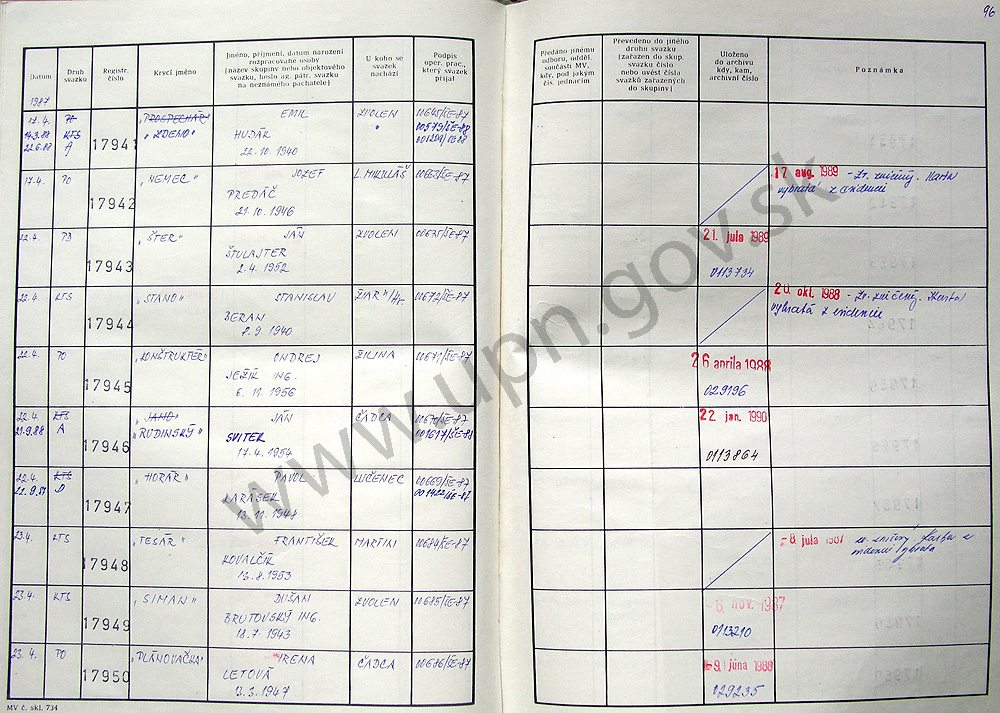 96
Datum
Druh svazku
Registr. číslo
Krycí jméno
Jméno, příjmení, datum narození
rozpracované osoby
(název skupiny nebo objektového
svazku, heslo ag. pátr. svazku
na neznámého pachatele)
U koho se
svazek
nachází
Podpis
oper. prac.,
který svazek
přijal
Předáno jinému
odboru, odděl.
součásti MV,
kdy, pod jakým
čís. jednacím
Převedeno do jiného
druhu svazku
(zařazen do skup.
svazku číslo
nebo uvést číslo
svazků zařazených
do skupiny)
Uloženo
do archivu
kdy, kam,
archivní číslo
Poznámka
1987
17.4. KTS A 17941 "ZDENO" EMIL HUDÁK 22.10.1940 ZVOLEN " 00645/ŠE-87
17.4. PO 17942 "NEMEC" JOZEF PREDÁČ 21.10.1946 L. MIKULÁŠ 17 aug. 1989 - Zv. zničený. Karta
vybratá z evidencie
22.4. 17943 "ŠTER" JÁN ŠTULAJTER 2.4.1952 ZVOLEN 00675/ŠE-87 21. jula 1989
0113734
22.4. KTS 17944 "STANO" STANISLAV BERAN 8.9.1940 00672/ŠE-87 20. okt. 1988 - Zv. zničený. Karta
vybratá z evidencie
22.4. PO 17945 "KONŠTRUKTÉR" ONDREJ JEŽÍK ING. 6.11.1956 ŽILINA 00671/ŠE-87 26 aprila 1988
029196
22.4. KTS "JANO"
21.9.88 A 17946 "RUDINSKÝ" JÁN SVITEK 17.4.1954 ČADCA 00670/ŠE-87 22 jan. 1990
0113864
22.4. KTS D 17947 "HORÁR" PAVOL KARÁSEK 13.11.1948 LUČENEC 00669/ŠE-87
23.4. KTS 17948 "TESÁR" FRANTIŠEK KOVALČÍK 16.8.1953 MARTIN 00684/ŠE-87 -8 jula 1987
23.4. KTS 17949 "SIMAN" DUŠAN BRUTOVSKÝ ING. 18.7.1943 ZVOLEN 00685/ŠE-87 -6 nov. 1987
0113210
23.4. PO 17950 "PLÁNOVAČKA" IRENA LETOVÁ 13.3.1947 ČADCA 00686/ŠE-87 -9 júna 1988
029235
MV č. skl. 734
www.upn.gov.sk